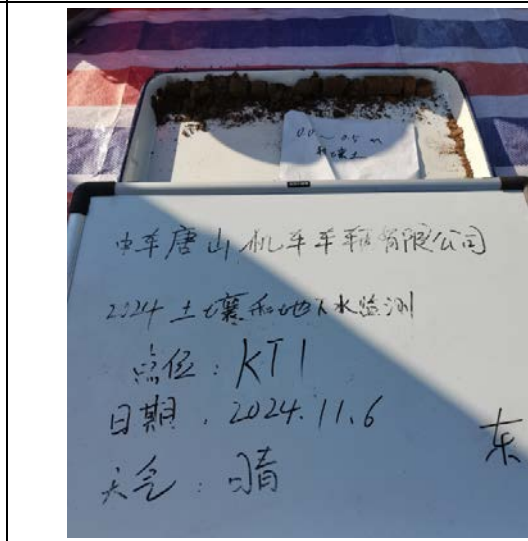 0.0~0.5m
中车唐山机车车辆有限公司
2024土壤和地下水监测
点位:KT1
日期.2024.11.6
天气:晴
东